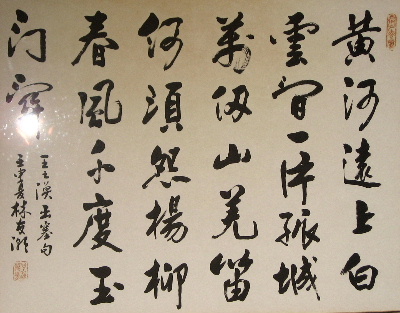 黃河遠上白
雲間一片孤城
萬仞山羌笛
何須怨楊柳
春風不度玉
门關
王之渙出塞句
夏林